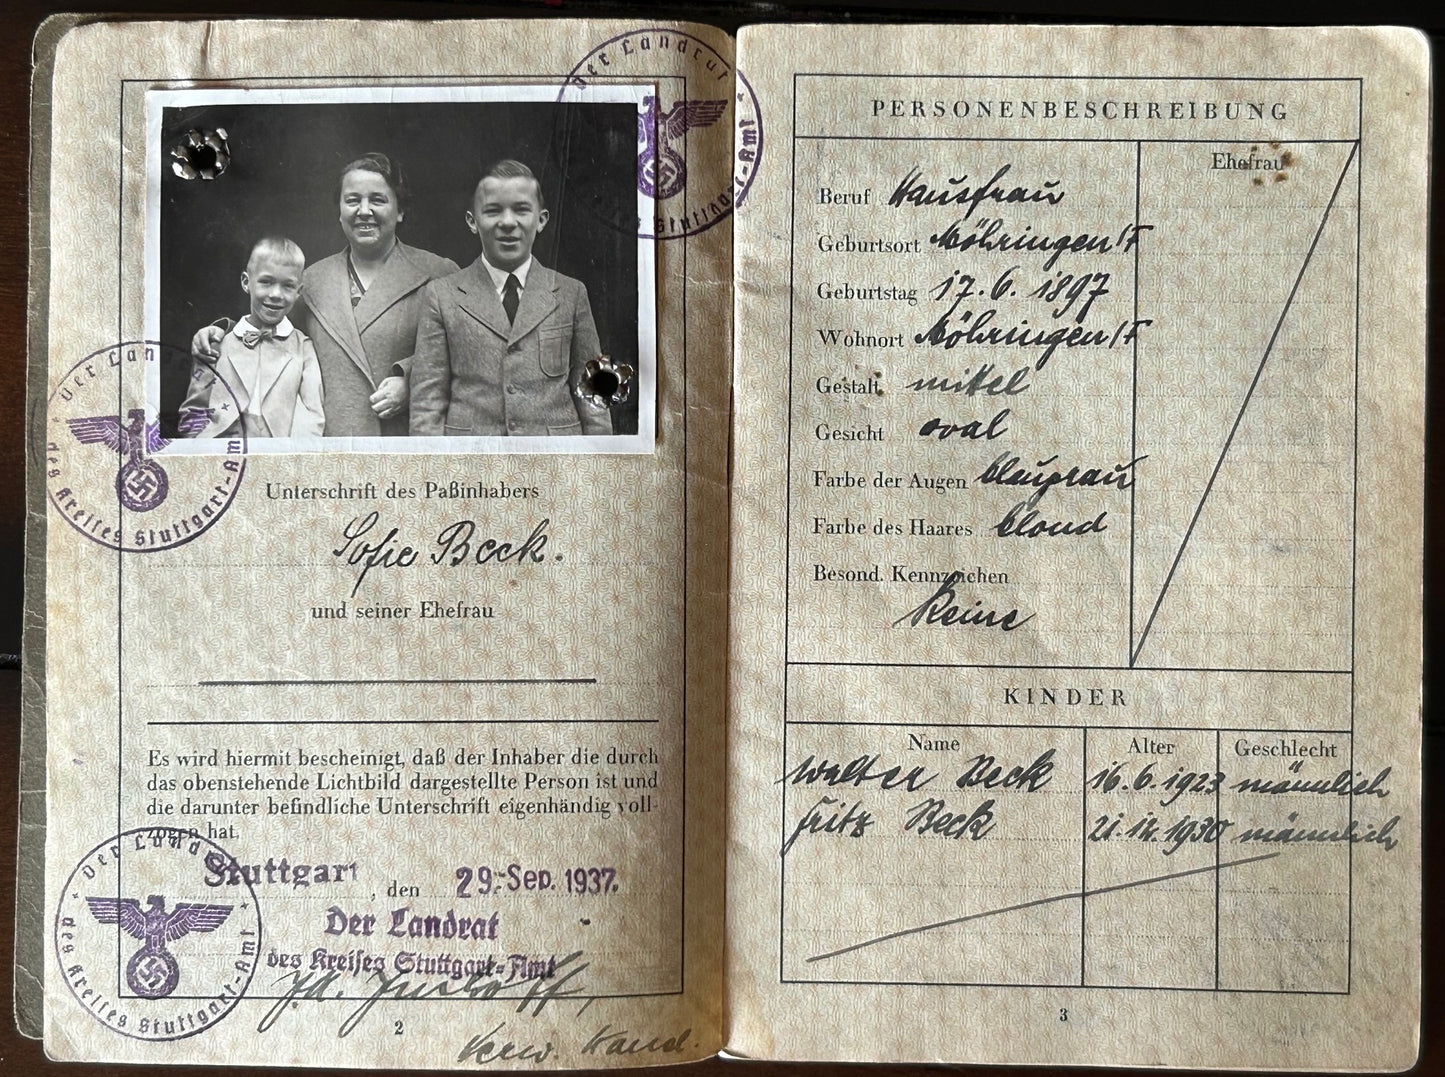 Der Landrat
des Kreises Stuttgart-Amt
Der Landrat
des Kreises Stuttgart-Amt
Unterschrift des Paßinhabers
Sofie Beck.
und seiner Ehefrau
Es wird hiermit bescheinigt, daß der Inhaber die durch
das obenstehende Lichtbild dargestellte Person ist und
die darunter befindliche Unterschrift eigenhändig voll-
zogen hat.
Der Landrat
des Kreises Stuttgart-Amt
Stuttgart, den 29. Sep. 1937.
Der Landrat
des Kreises Stuttgart-Amt
Verw.
2
PERSONENBESCHREIBUNG
Ehefrau
Beruf Hausfrau
Geburtsort Möhringen/F
Geburtstag 17.6.1897
Wohnort Möhringen/F
Gestalt mittel
Gesicht oval
Farbe der Augen blaugrau
Farbe des Haares blond
Besond. Kennzeichen
Keine
KINDER
Name Alter Geschlecht
Walter Beck 16.6.1923 männlich
Fritz Beck 1930 männlich
3